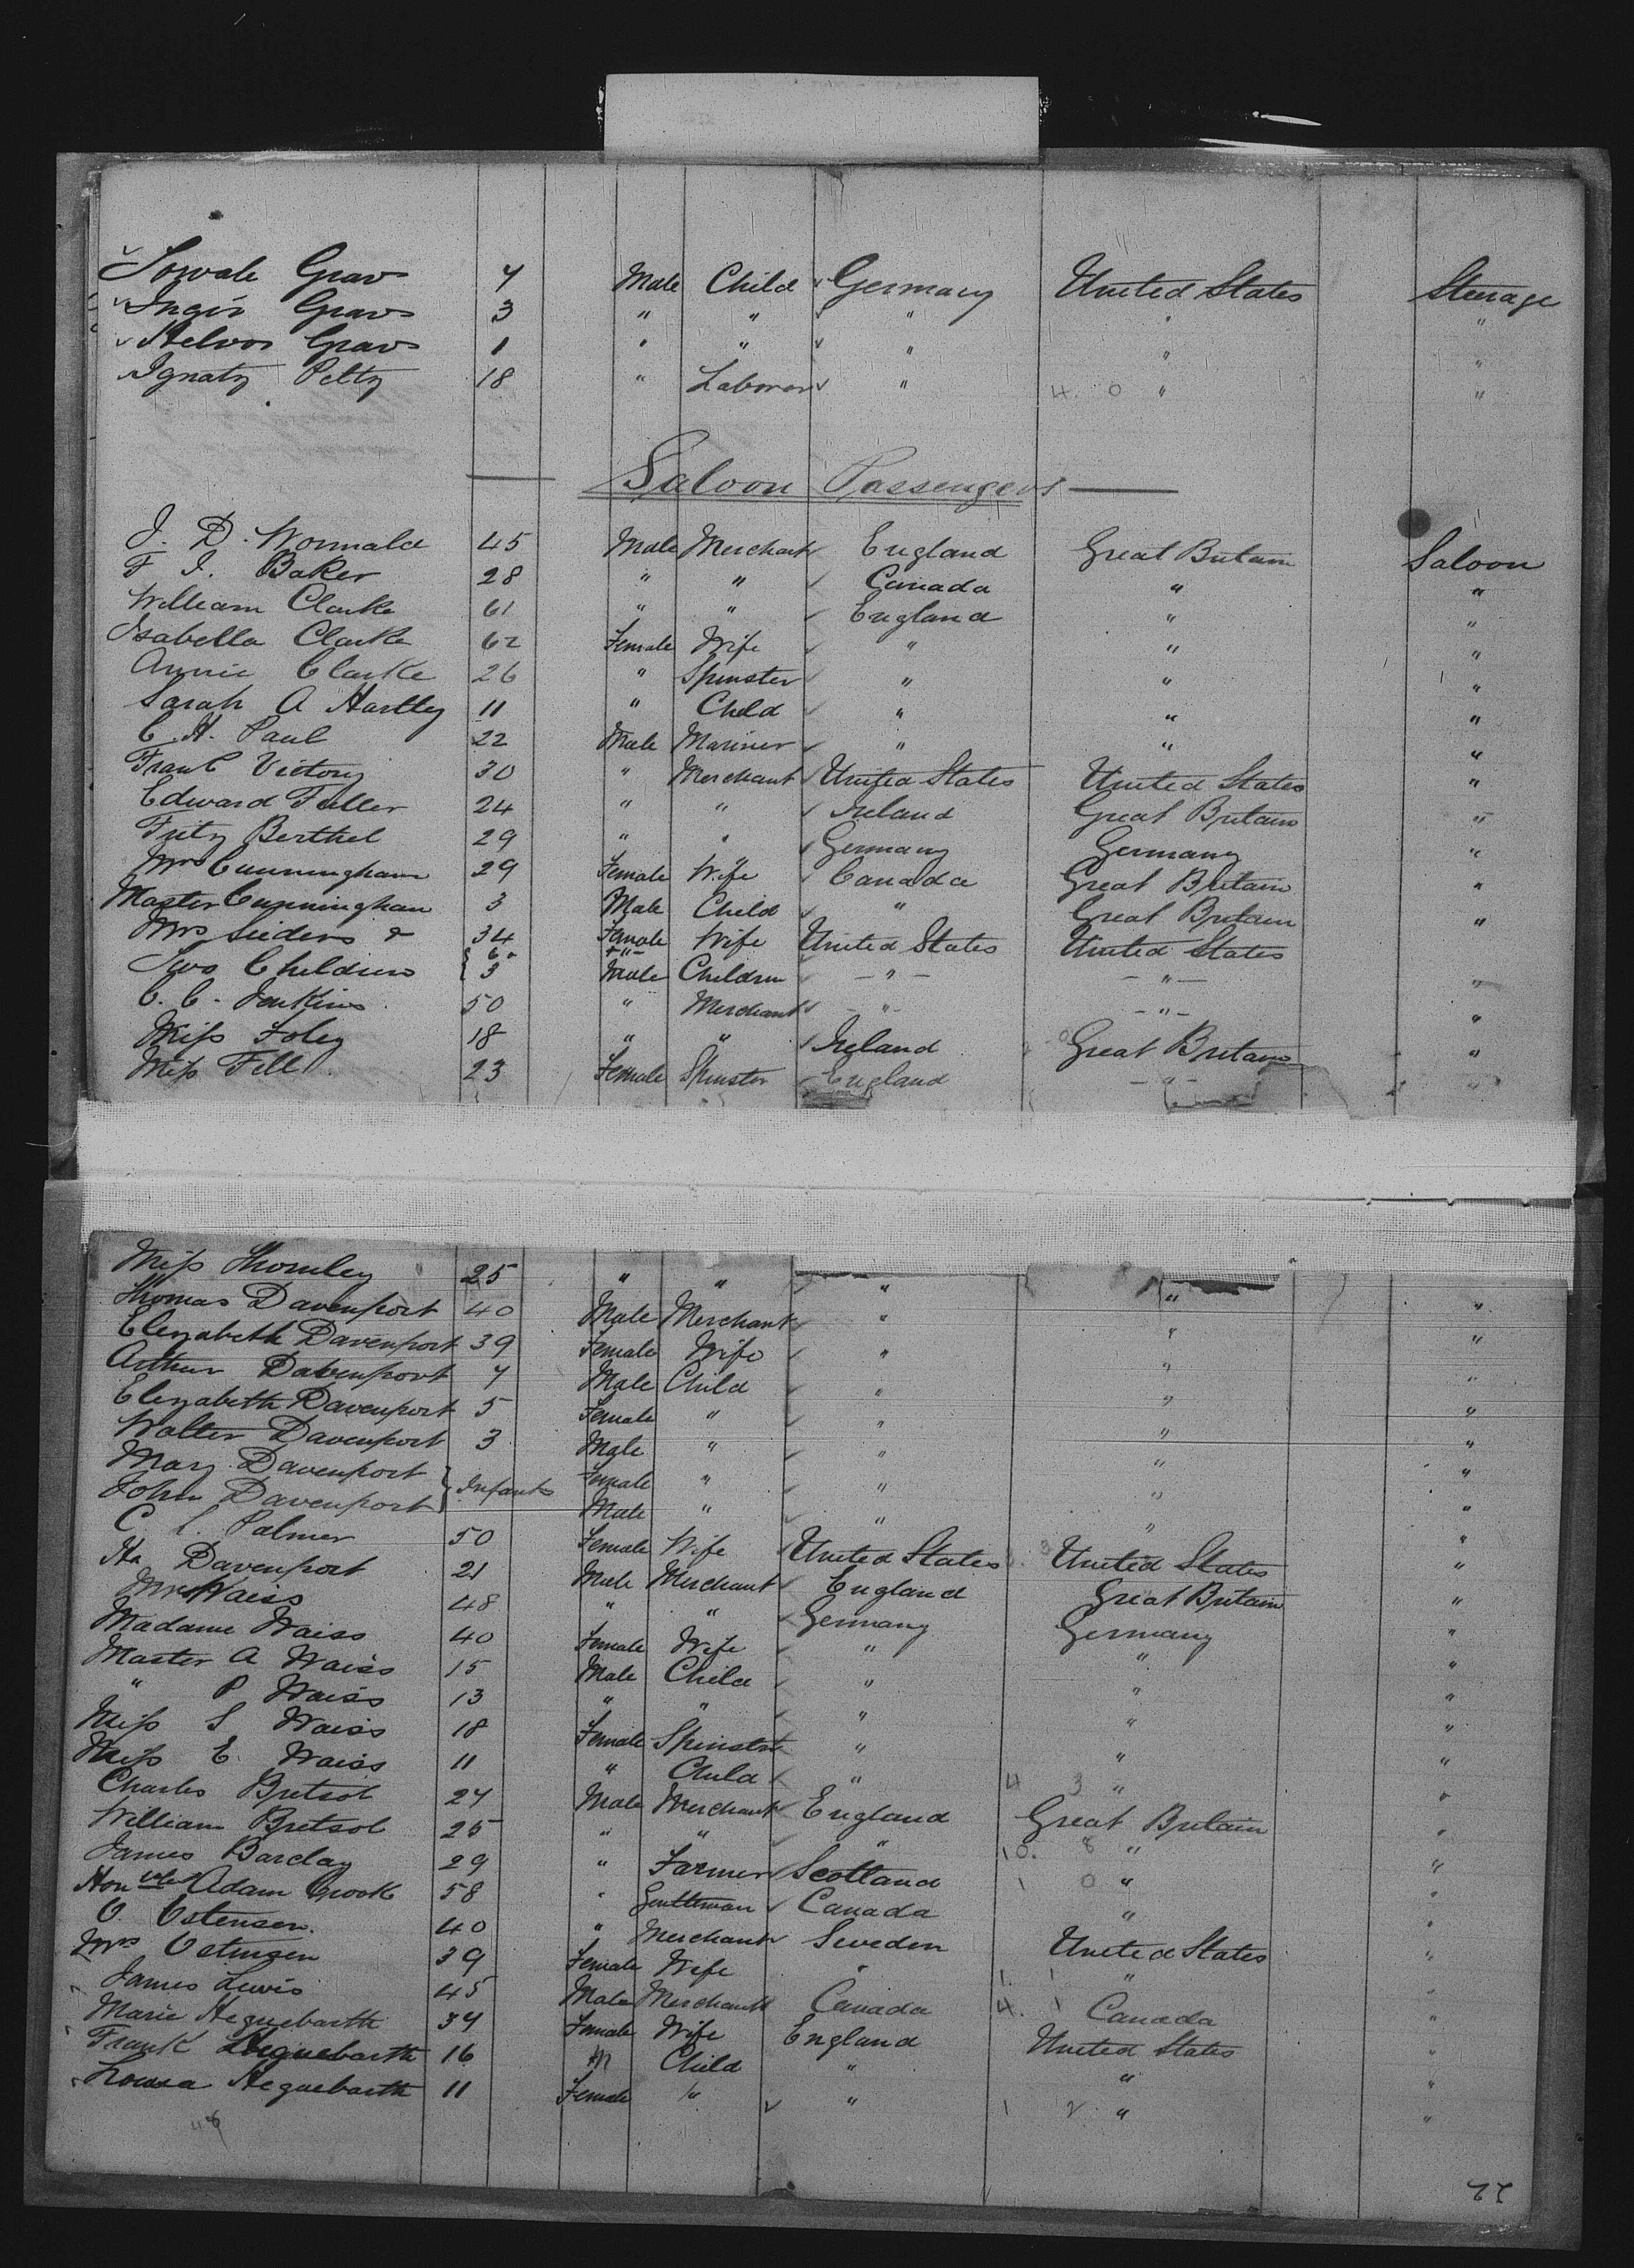 Gravs 7 Male Child Germany United States Steerage
Gravs 3 " " " " "
Gravs 1 " " " " "
Ignatz Peltz 18 " Laborer " 4. 0 " "
Saloon Passengers
J. D. Wormald 45 Male Merchant England Great Britain Saloon
F I. Baker 28 " " Canada " "
William Clarke 61 " " England " "
Isabella Clarke 62 Female Wife " " "
Annie Clarke 26 " Spinster " " "
Sarah A Hartley 11 " Child " " "
C. H. Paul 22 Male Mariner " " "
Frank Victory 30 " Merchant United States United States "
Edward Fuller 24 " " Ireland Great Britain "
Fritz Berthel 29 " " Germany Germany "
Mrs Cunningham 29 Female Wife Canada Great Britain "
Master Cunningham 3 Male Child " Great Britain "
Mrs & 34 Female Wife United States United States
Two Children { 6 3 Male Children - " - - " - "
C. C. Jenkins 50 " Merchant - " - - " - "
Miss Foley 18 " " Ireland Great Britain "
Miss Fell 23 Female Spinster England - " - "
Miss Thornley 25 " " " "
Thomas Davenport 40 Male Merchant " " "
Elizabeth Davenport 39 Female Wife " " "
Arthur Davenport 7 Male Child " " "
Elizabeth Davenport 5 Female " " " "
Walter Davenport 3 Male " " " "
Mary Davenport } Infants Female " " " "
John Davenport Male " " " "
C. L. Palmer 50 Female Wife United States United States "
Ha Davenport 21 Male Merchant England Great Britain "
Mr Waiss 48 " " Germany Germany "
Madame Waiss 40 Female Wife " " "
Master A Waiss 15 Male Child " " "
" P Waiss 13 " " " " "
Miss S Waiss 18 Female Spinster " " "
Miss E. Waiss 11 " Child " 4 3 " "
Charles Bretsol 27 Male Merchant England Great Britain "
William Bretsol 25 " " " 10. 8 " "
James Barclay 29 " Farmer Scotland 1 0 " "
Honble Adam Crook 58 " Gentleman Canada " "
O. Ostensen. 40 " Merchant Sweden United States "
Mrs Ostensen 39 Female Wife " 1. 1 " "
James Lewis 45 Male Merchant Canada 4. 1 Canada "
Marie Heguebarth 34 Female Wife England United States "
Frank Heguebarth 16 M Child " " "
Louisa Heguebarth 11 Female " " 1 2 " "
48
22